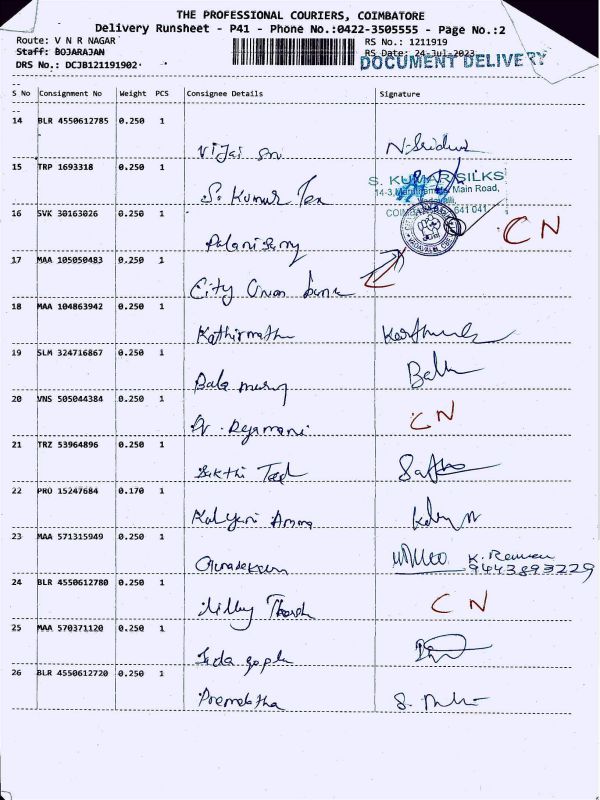 THE PROFESSIONAL COURIERS, COIMBATORE
Delivery Runsheet - P41 - Phone No.:0422-3505555 - Page No.:2
Route: V N R NAGAR
Staff: BOJARAJAN
DRS No.: DCJB121191902
RS No.: 1211919
RS Date: 24-Jul-2023
DOCUMENT DELIVERY
S No Consignment No Weight PCS Consignee Details Signature
14 BLR 4550612785 0.250 1
Vijai Sri N. Sridevi
15 TRP 1693318 0.250 1
S. Kumar Tex
S. KUMAR SILKS
Main Road,
16 SVK 30163026 0.250 1
641 041
Palanisamy CN
17 MAA 105050483 0.250 1
City Union bank
18 MAA 104863942 0.250 1
Kathirmathi
19 SLM 324716867 0.250 1
Bala murug Bala
20 VNS 505044384 0.250 1
Dr. Rajamani CN
21 TRZ 53964896 0.250 1
Sakthi Tex
22 PRO 15247684 0.170 1
Kalyani Amma
23 MAA 571315949 0.250 1
Gunasekaran K. Raman
9443893229
24 BLR 4550612780 0.250 1
CN
25 MAA 570371120 0.250 1
26 BLR 4550612720 0.250 1
Premalatha